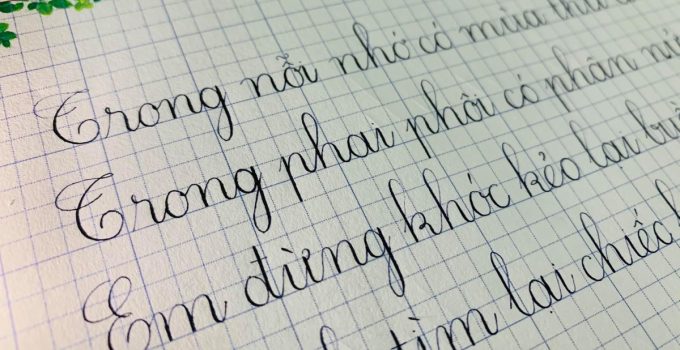 Trong nỗi nhớ có mùa thu
Trong phai phôi có phân
Em đừng khóc kẻo lại
tìm lại chiếc